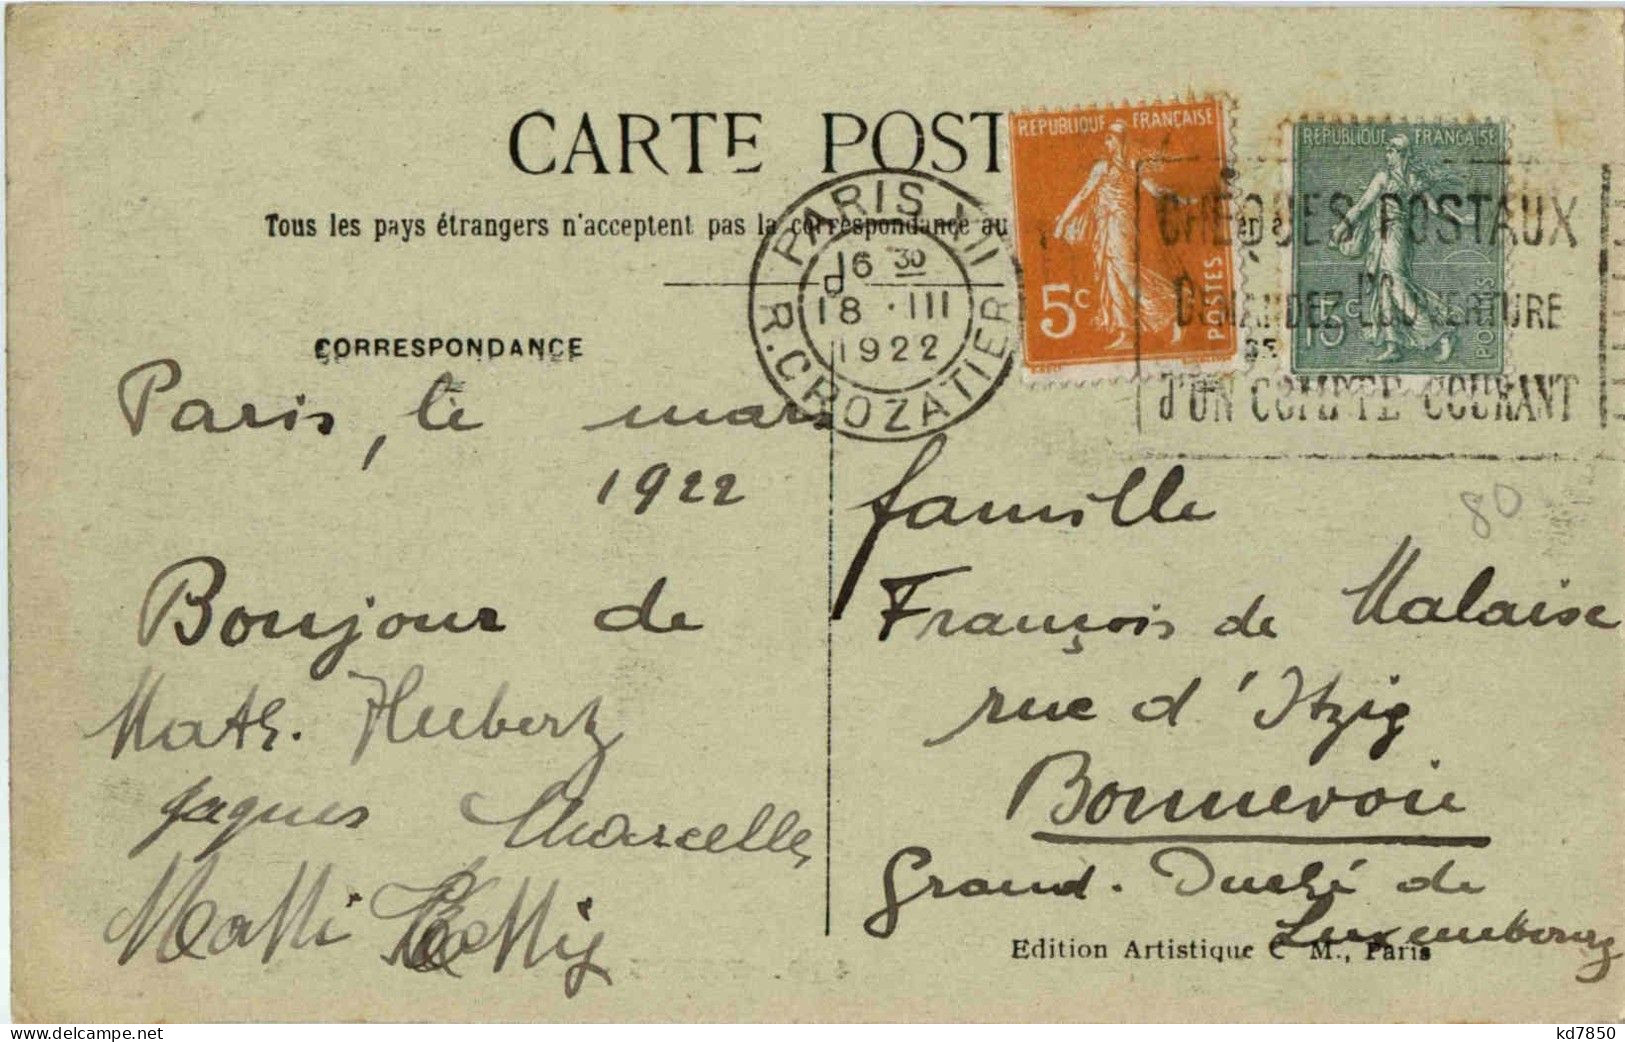 CARTE POST
RÉPUBLIQUE FRANÇAISE
5c
POSTES
RÉPUBLIQUE FRANÇAISE
15c
POSTES
Tous les pays étrangers n'acceptent pas la correspondance au
PARIS XII
16 30
18 · III
1922
R. CROZATIER
CHEQUES POSTAUX
DEMANDEZ L'OUVERTURE
D'UN COMPTE COURANT
CORRESPONDANCE
Paris, le mars
1922
Bonjour de
Math. Hubertz
Jaques Marcelle
famille
François de Malaise
rue d'Itzig
Bonnevoie
Grand-Duché de
Luxembourg
80
Edition Artistique C M., Paris
kd7850